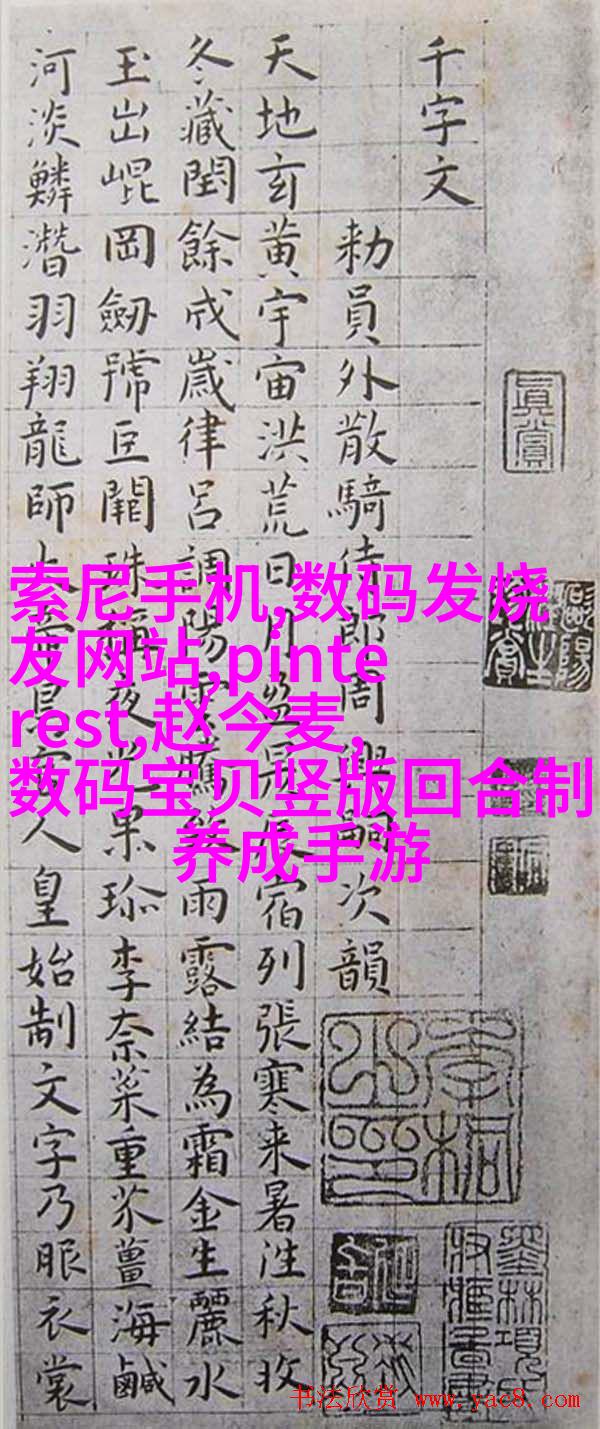 千字文
勑員外散騎侍郎周興嗣次韻
天地玄黃宇宙洪荒日月盈昃辰宿列張寒来暑往秋收
冬藏閏餘成歲律呂調陽雲騰致雨露結為霜金生麗水
玉出崐岡劒號巨闕珠稱夜光果珎李柰菜重芥薑海鹹
河淡鱗潛羽翔龍師火帝鳥官人皇始制文字乃服衣裳
真賞
索尼手机,数码发烧
友网站,pinte
rest,赵今麦,
数码宝贝竖版回合制
养成手游
书法欣赏 www.yac8.com